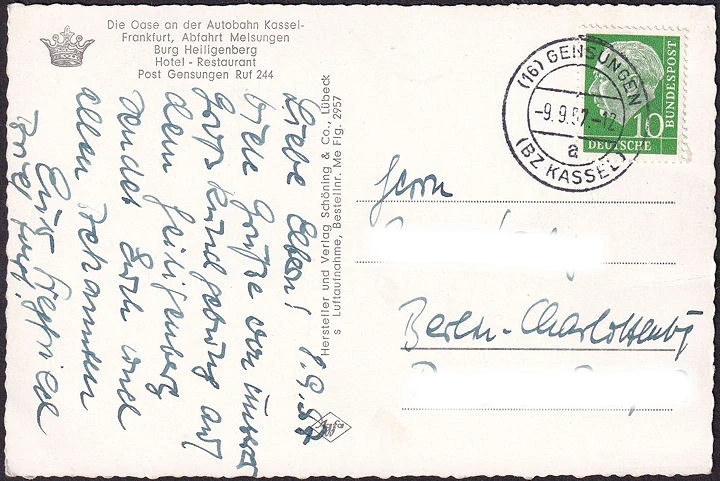 Die Oase an der Autobahn Kassel-
Frankfurt, Abfahrt Melsungen
Burg Heiligenberg
Hotel - Restaurant
Post Gensungen Ruf 244
Liebe Eltern! 8.9.57
Viele Grüße von unserer
Großkundgebung auf
dem Heiligenberg
sendet Euch und
allen Bekannten
Euer Siegfried
Hersteller und Verlag Schöning & Co., Lübeck
s Luftaufnahme, Bestellnr. Me Flg. 2957
Agfa
(16) GENSUNGEN
-9.9.57.-12
a
(BZ KASSEL)
10
DEUTSCHE
BUNDESPOST
Herrn
Berlin-Charlottenbg